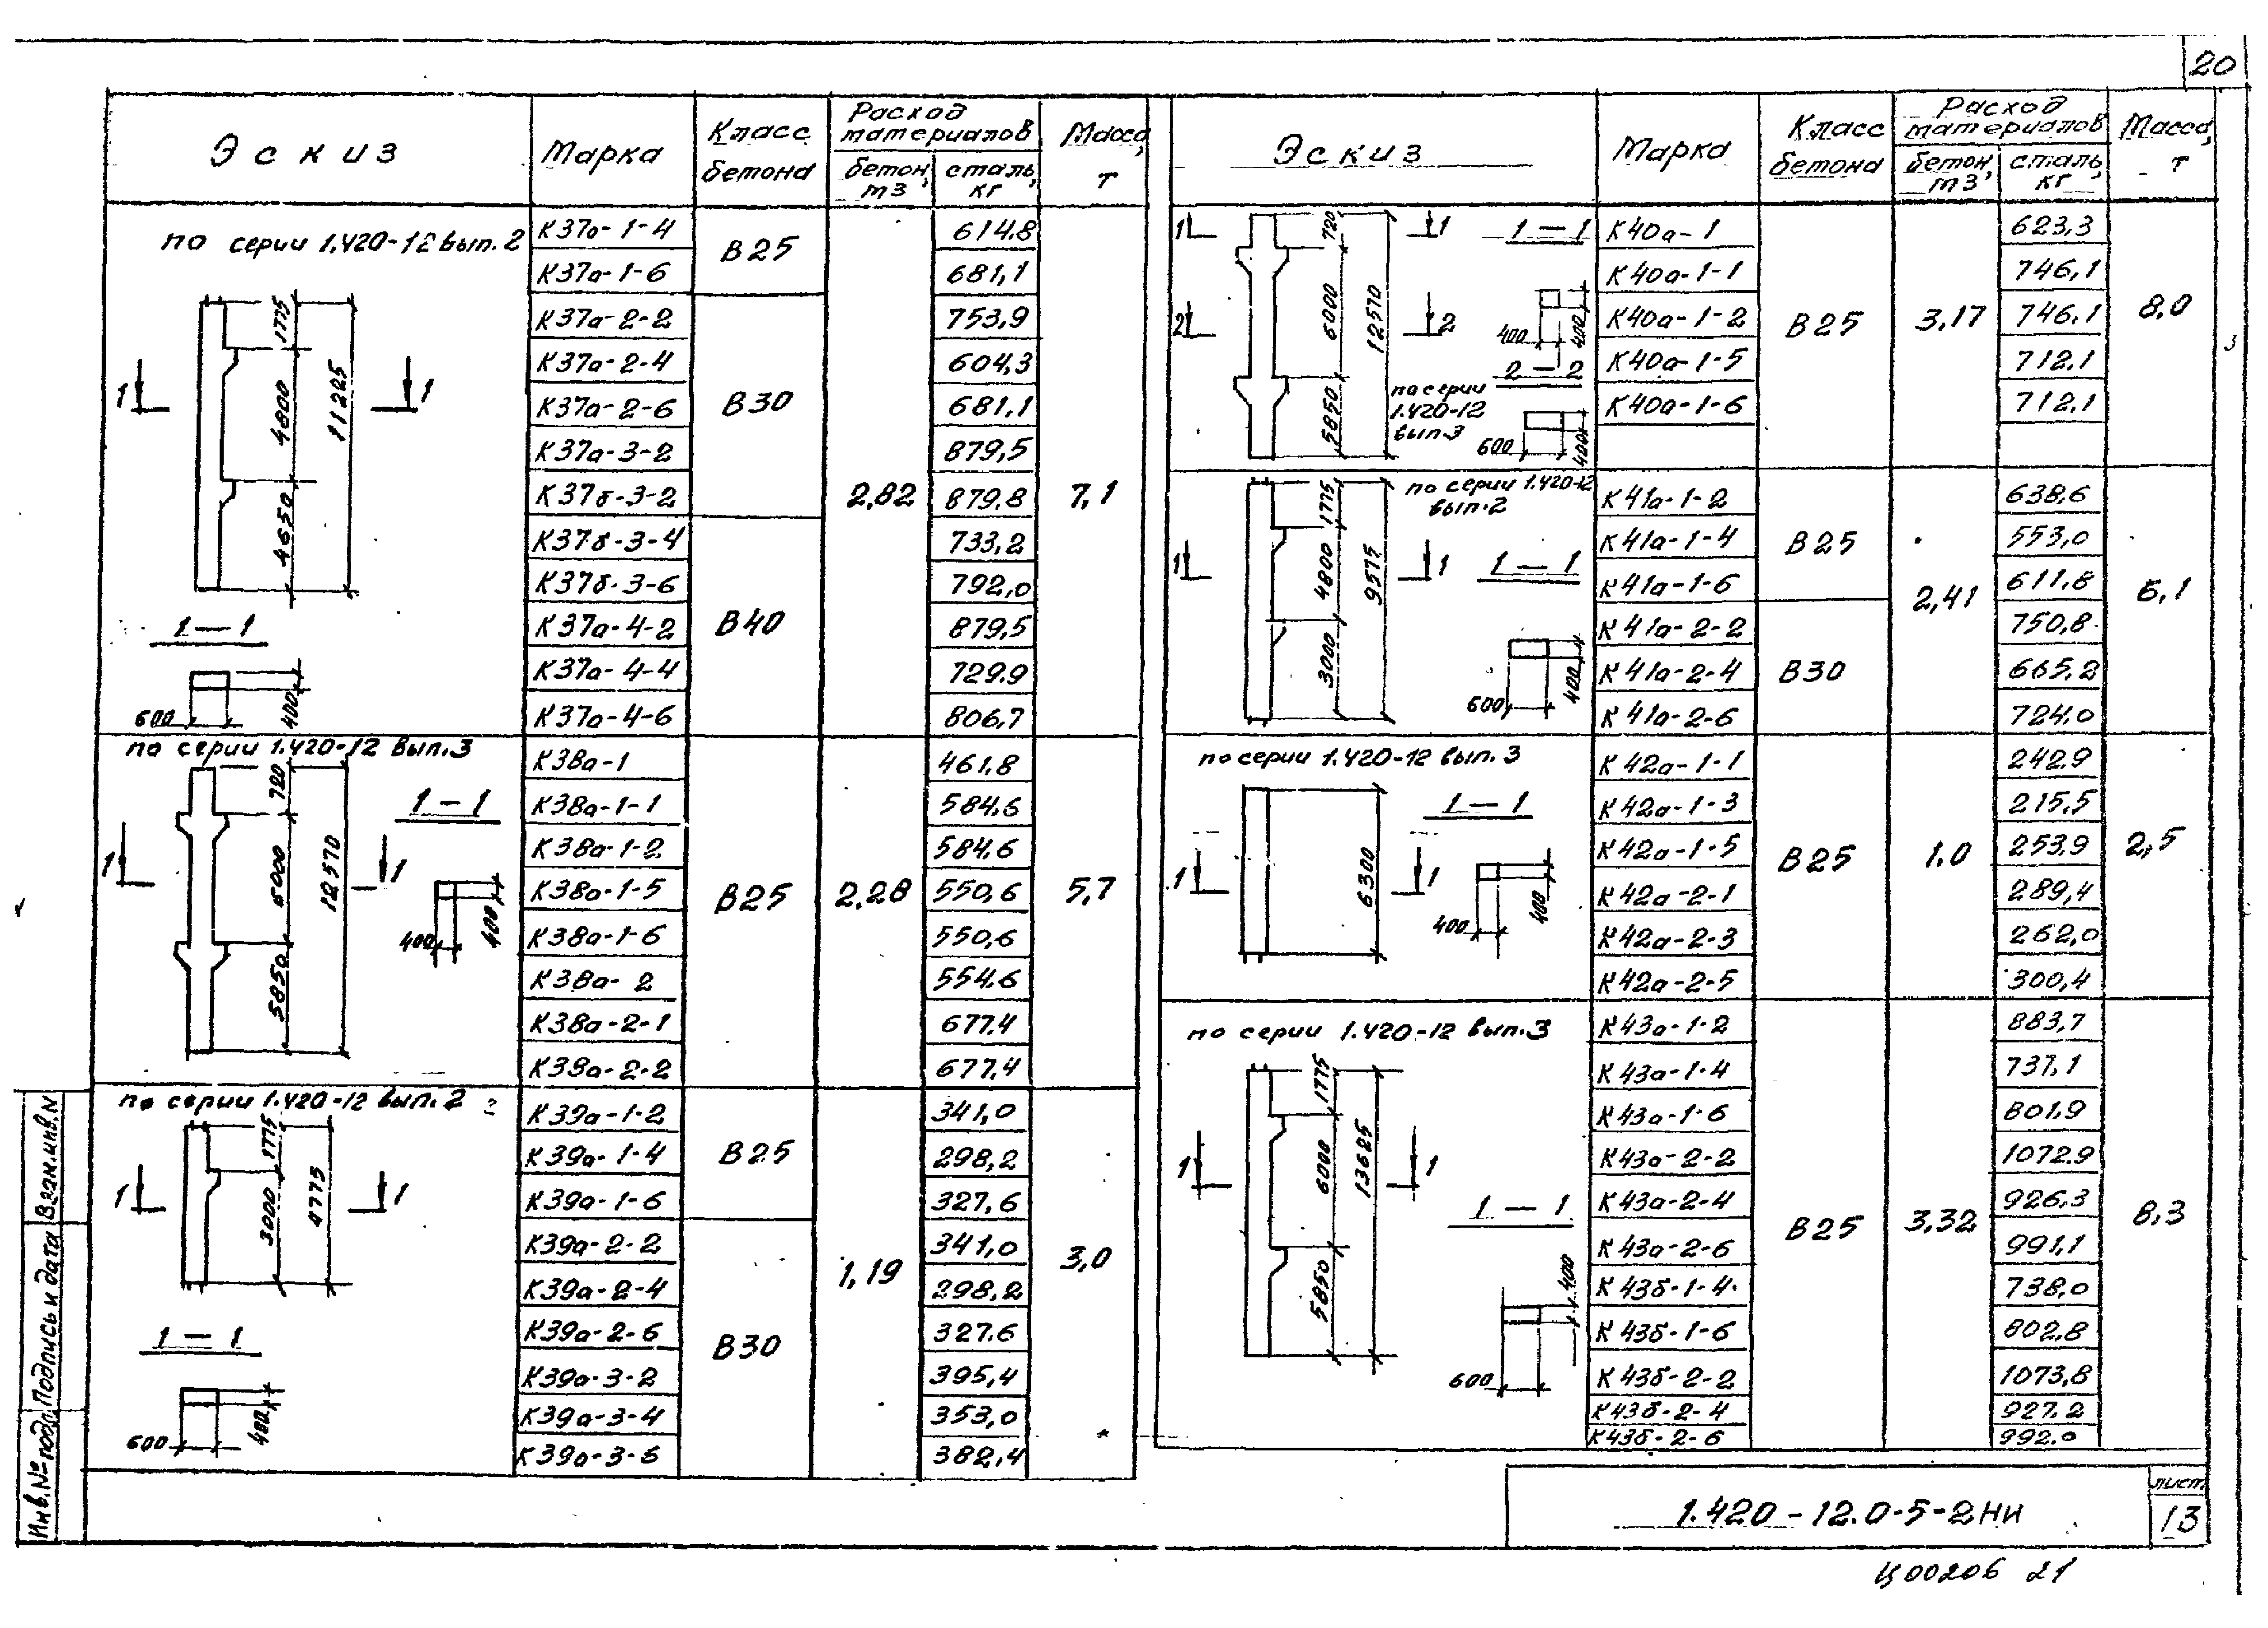 20
Эскиз Марка Класс бетона Расход материалов Масса, т
бетон, м3 сталь, кг
по серии 1.420-12 вып. 2
1775 4800 4650 11225
1 1
1-1
600 400
К37а-1-4 В25 2,82 614,8 7,1
К37а-1-6 681,1
К37а-2-2 В30 753,9
К37а-2-4 604,3
К37а-2-6 681,1
К37а-3-2 879,5
К37б-3-2 879,8
К37б-3-4 В40 733,2
К37б-3-6 792,0
К37а-4-2 879,5
К37а-4-4 729.9
К37а-4-6 806,7
по серии 1.420-12 вып.3
720 6000 5850 12570
1 1
1-1
400 400
К38а-1 В25 2,28 461,8 5,7
К38а-1-1 584,6
К38а-1-2 584,6
К38а-1-5 550,6
К38а-1-6 550,6
К38а-2 554,6
К38а-2-1 677,4
К38а-2-2 677,4
по серии 1.420-12 вып. 2
1775 3000 4775
1 1
1-1
600 400
К39а-1-2 В25 1,19 341,0 3,0
К39а-1-4 298,2
К39а-1-6 327,6
К39а-2-2 В30 341,0
К39а-2-4 298,2
К39а-2-6 327.6
К39а-3-2 395,4
К39а-3-4 353,0
К39а-3-6 382,4
Эскиз Марка Класс бетона Расход материалов Масса, т
бетон, м3 сталь, кг
1 1
2 2
720 6000 5850 12570
1-1
400 400
2-2
по серии
1.420-12
вып.3
600 400
К40а-1 В25 3,17 623,3 8,0
К40а-1-1 746,1
К40а-1-2 746,1
К40а-1-5 712.1
К40а-1-6 712.1
по серии 1.420-12
вып.2
1775 4800 3000 9575
1 1
1-1
600 400
К41а-1-2 В25 2,41 638,6 6,1
К41а-1-4 553,0
К41а-1-6 611,8
К41а-2-2 В30 750,8
К41а-2-4 665,2
К41а-2-6 724,0
по серии 1.420-12 вып. 3
6300
1 1
1-1
400 400
К42а-1-1 В25 1.0 242.9 2,5
К42а-1-3 215,5
К42а-1-5 253,9
К42а-2-1 289,4
К42а-2-3 262,0
К42а-2-5 300,4
по серии 1.420-12 вып.3
1775 6000 5850 13625
1 1
1-1
600 400
К43а-1-2 В25 3,32 883,7 8,3
К43а-1-4 737,1
К43а-1-6 801,9
К43а-2-2 1072.9
К43а-2-4 926,3
К43а-2-6 991,1
К43б-1-4 738,0
К43б-1-6 802,8
К43б-2-2 1073,8
К43б-2-4 927.2
К43б-2-6 992.0
Инв.№ подл. Подпись и дата Взам.инв.N
1.420-12.0-5-2НИ
лист
13
Ц00206 21